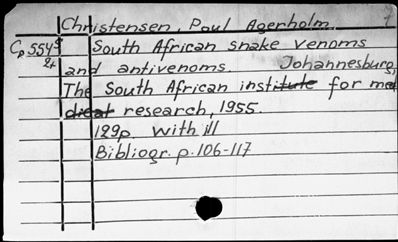 Christensen, Poul Agerholm
Cp 5545 South African snake venoms
2+ and antivenoms. Johannesburg,
The South African institute for me
dical research, 1955.
129p with ill
Bibliogr. p. 106-117